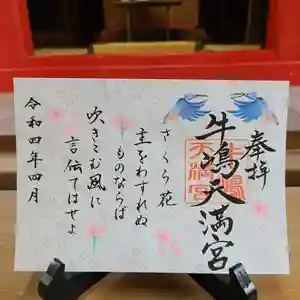 奉拝
牛嶋天満宮
さくら花
主をわすれぬ
ものならば
吹きこむ風に
言伝てはせよ
令和四年四月